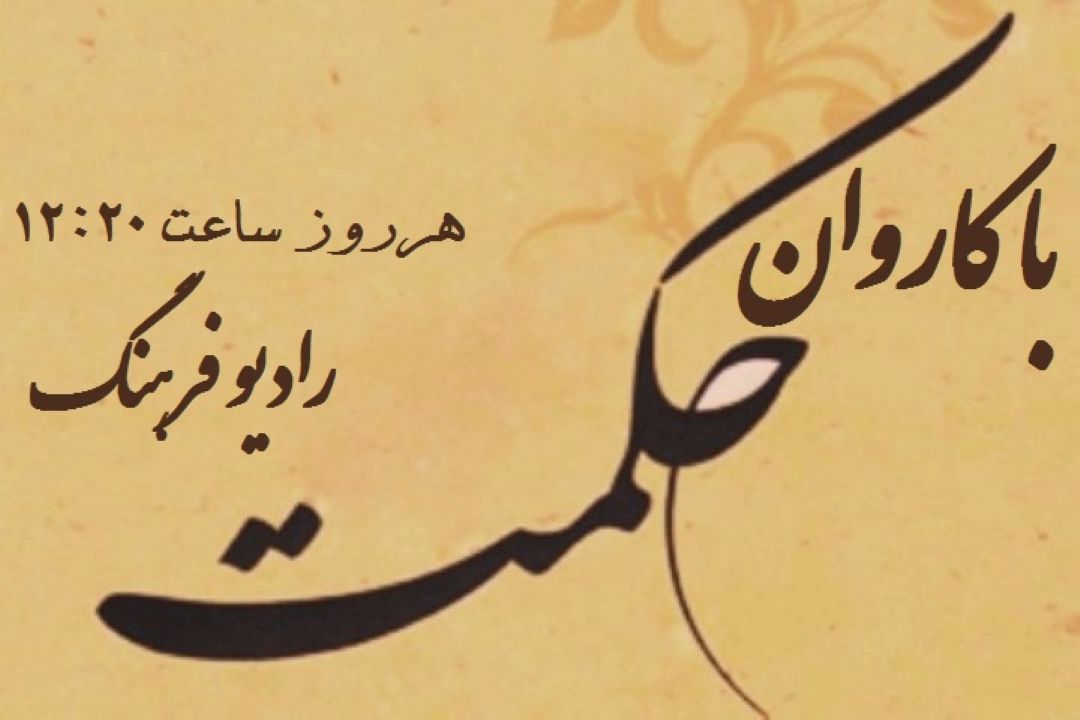 با کاروان
حکمت
هرروز ساعت ۱۲:۲۰
رادیو فرهنگ